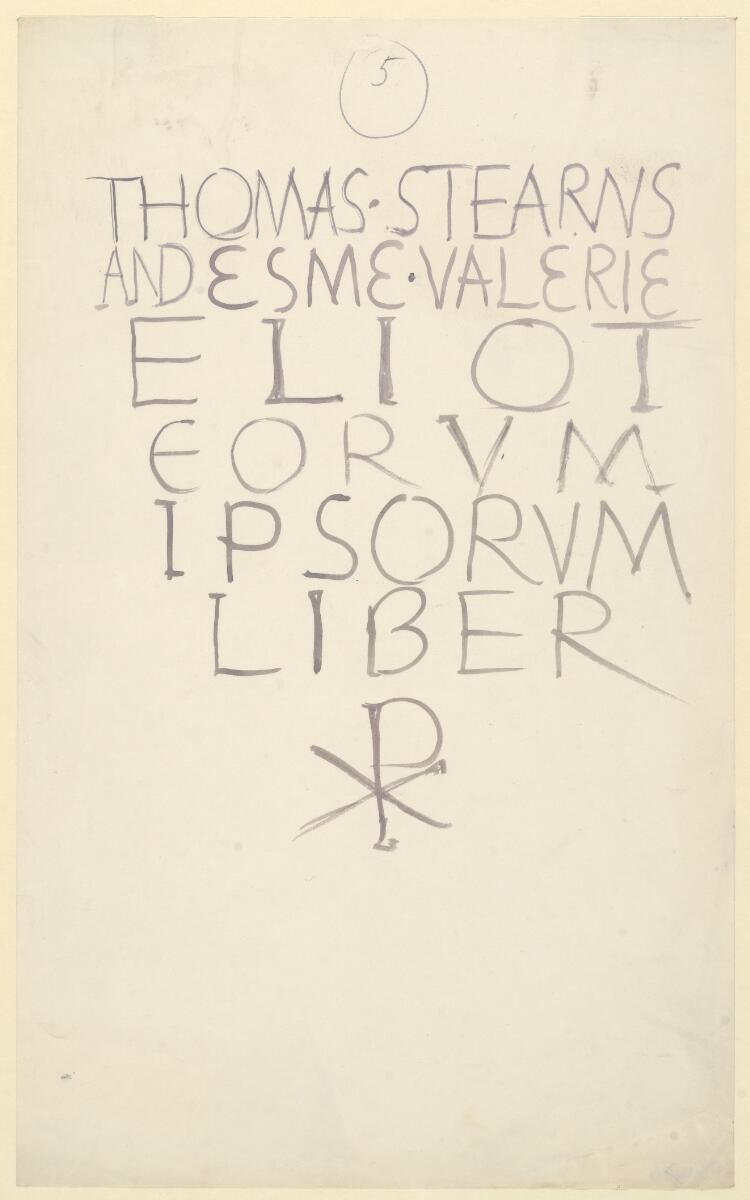 5
THOMAS·STEARNS
AND ESME·VALERIE
ELIOT
EORVM
IPSORVM
LIBER
☧